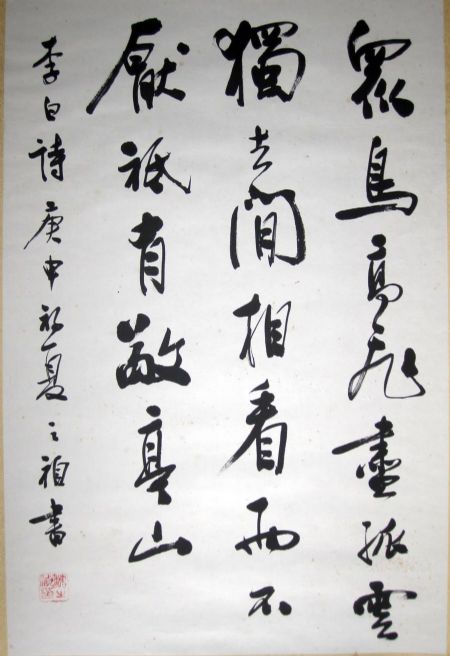 眾鳥高飛盡孤雲
獨去間相看兩不
厭祇有敬亭山
李白詩庚申初夏之書